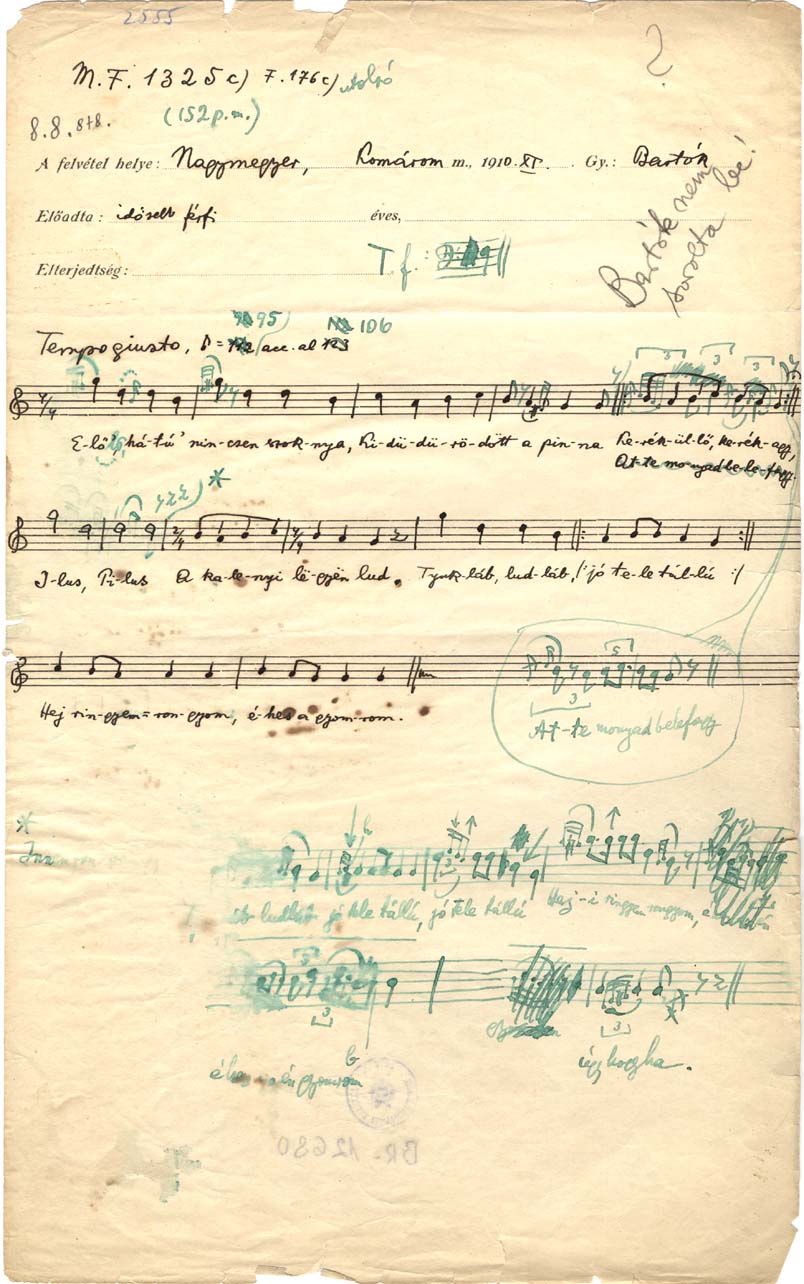 2555
M.F. 1325c) F.176c) utolsó
?
8.8. 8+8. (152 p.m.)
A felvétel helye: Nagymegyer, Komárom m., 1910. XI. Gy.: Bartók
Előadta: idősebb férfi éves,
Elterjedtség: T. f.:
Bartók nem
sorolta be!
Tempo giusto, ♪ = 95) acc. al 106
há-tú' nin-csen szok-nya, Ri-dü-dü-rö-dött a pin-na Ke-rék-ül-lő, ke-rék-agy,
At-te monyad be-le-fagy.
I-lus, Pi-lus A ka-te-nyi lë-gyën lud. Tyuk-láb, lud-láb, /: jó te-le tál-lú :/
Hej rin-gyem-ron-gyom, é-hes a gyom-rom.
At-te monyad belefagy
*
ludláb jó tele tállú, jó tele tállú Haj-i ringyem rongyom, é
gyomrom
úgy kocgha.
BR. 12680